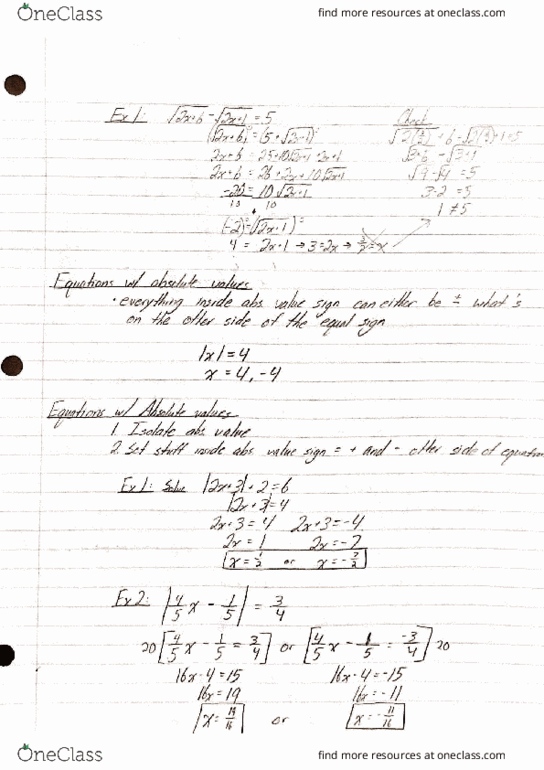 OneClass
find more resources at oneclass.com
Ex 1: √2x+6 - √2x+1 = 5
Check
(√2x+6)² = (5+√2x+1)²
2x+6 = 25+10√2x+1 + 2x+1
2x+6 = 26+2x+10√2x+1
√3+6 - √3+1
-20 = 10√2x+1
√9 - √4 = 5
10 10
3-2 = 5
(-2)² = (√2x+1)²
1 ≠ 5
4 = 2x+1 → 3=2x → 3/2 = x
Equations w/ absolute values
· everything inside abs value sign can either be ± what's
on the other side of the equal sign
|x| = 4
x = 4, -4
Equations w/ Absolute values
1. Isolate abs value
2. Set stuff inside abs value sign = + and - other side of equation
Ex 1: Solve |2x+3| + 2 = 6
|2x+3| = 4
2x+3 = 4 2x+3 = -4
2x = 1 2x = -7
x = 1/2 or x = -7/2
Ex 2: |4/5 x - 1/5| = 3/4
20 [4/5 x - 1/5 = 3/4] or [4/5 x - 1/5 = -3/4] 20
16x-4 = 15 16x-4 = -15
16x = 19 16x = -11
x = 19/16 or x = -11/16
OneClass
find more resources at oneclass.com